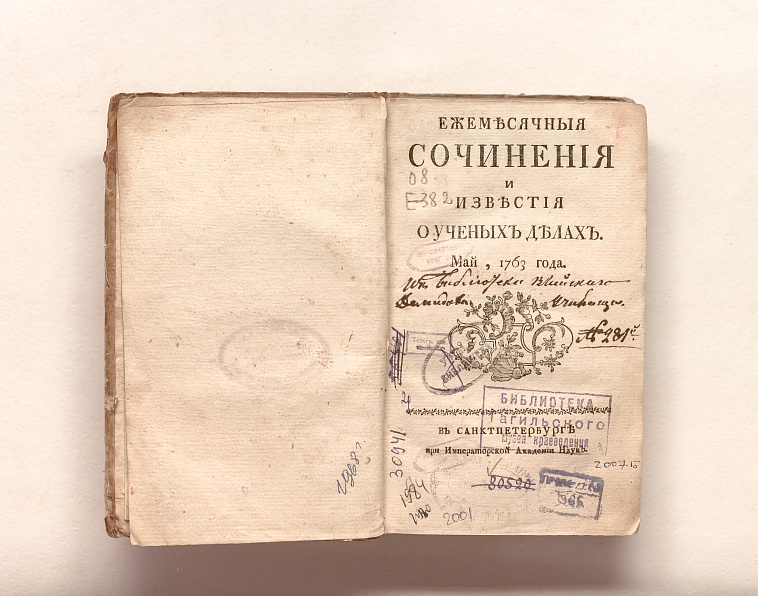 1968 г.
ЕЖЕМѢСЯЧНЫЯ
СОЧИНЕНІЯ
И
ИЗВѢСТІЯ
О УЧЕНЫХЪ ДѢЛАХЪ.
Май , 1763 года.
08
Е-382
библіотеки
Демидова Училища.
№ 281
БИБЛИОТЕКА
Тагильского
Музея краеведения
ВЪ САНКТПЕТЕРБУРГѢ
при Императорской Академіи Наукъ.
30941
1984
2001
80520
2007